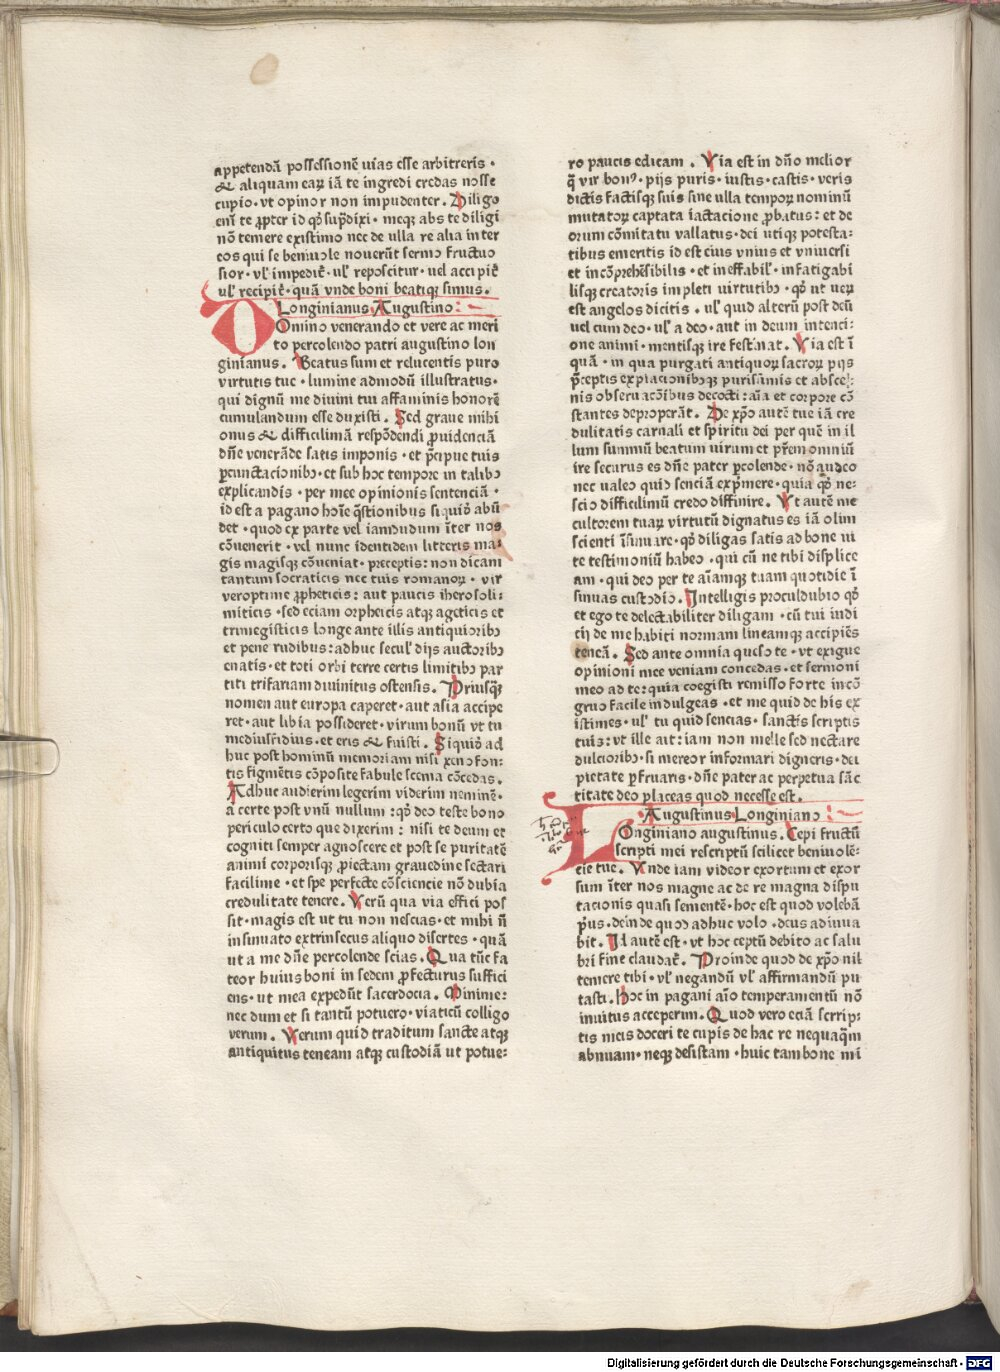 appetendā possessionē uias esse arbitreris ·
& aliquam eaꝝ iā te ingredi credas nosse
cupio · vt opinor non impudenter . Diligo
eni te ꝓpter id qd supdixi · meqꝫ abs te diligi
nō temere existimo nec de ulla re alia inter
eos qui se beniuole nouerūt sermo fructuo
sior · vl impedit̄ · ul reposcitur · uel accipit̄
ul recipit̄ · quā vnde boni beatiqꝫ simus .
Longinianus Augustino :
Omino venerando et vere ac meri
to percolendo patri augustino lon
ginianus . Beatus sum et relucentis puro
virtutis tue · lumine admodū illustratus ·
qui dignū me diuini tui affaminis honorē
cumulandum esse duxisti . Sed graue mihi
onus & difficilimā respōdendi ꝓuidenciā
dn̄e venerāde satis imponis · et p̄cipue tuis
ꝑcunctacionibꝫ · et sub hoc tempore in talibꝫ
explicandis · per mee opinionis sentenciā ·
id est a pagano hoīe q̄stionibus siquid abū
det · quod ex parte vel iamdudum īter nos
cōuenerit · vel nunc identidem litteris ma⸗
gis magisqꝫ cōueniat · preceptis: non dicam
tantum socraticis nec tuis romanoꝝ · vir
veroptime ꝓpheticis : aut paucis iherosoli⸗
miticis · sed eciam orpheicis atqꝫ ageticis et
trimegisticis longe ante illis antiquioribꝫ
et pene rudibus : adhuc secul dijs auctoribꝫ
enatis · et toti orbi terre certis limitibꝫ par
titi trifariam diuinitus ostensis . Priusq̄ꝫ
nomen aut europa caperet · aut asia accipe
ret · aut libia possideret · virum bonū vt tu
mediusfidius · et eris & fuisti . Siquid ad
huc post hominū memoriam nisi xenofon⸗
tis figmētis cōposite fabule scema cōcedas .
Adhuc audierim legerim viderim neminē ·
a certe post vnū nullum : qd deo teste bono
periculo certo que dixerim : nisi te deum et
cogniti semper agnoscere et post se puritatē
animi corporisqꝫ ꝓiectam grauedine sectari
facilime · et spe perfecte cōsciencie nō dubia
credulitate tenere . Verū qua via effici pos
sit · magis est ut tu non nescias · et mihi n̄
insinuato extrinsecus aliquo disertes · quā
ut a me dn̄e percolende scias . Qua tūc fa
teor huius boni in sedem ꝓfecturus suffici
ens · ut mea expedūt sacerdocia . Minime :
nec dum et si tantū potuero · viaticū colligo
verum . Verum quid traditum sancte atqꝫ
antiquitus teneam atqꝫ custodiā ut potue⸗
ro paucis edicam . Via est in dn̄o melior
q̄ vir bonꝰ · pijs puris · iustis · castis · veris
dictis factisqꝫ suis sine ulla tempoꝝ nominū
mutatoꝝ captata iactacione ꝓbatus : et de
orum cōmitatu vallatus · dei utiqꝫ potesta⸗
tibus emeritis id est eius vnius et vniuersi
et incōprehēsibilis · et ineffabil · infatigabi
lisqꝫ creatoris impleti virtutibꝫ · qd ut ueꝝ
est angelos dicitis . ul quid alterū post deū
uel cum deo · ul a deo · aut in deum intenci⸗
one animi · mentisqꝫ ire festinat . Via est ī
quā · in qua purgati antiquoꝝ sacroꝝ pijs
p̄ceptis expiacionibꝫqꝫ purissimis et absce⸗
nis obseruacōibus decocti : aīa et corpore cō
stantes deproperāt . De xpo autē tue iā cre
dulitatis carnali et spiritu dei per quē in il
lum summū beatum uirum et prēm omniū
ire securus es dn̄e pater ꝑcolende · nō audeo
nec ualeo quid senciā exp̄mere · quia qd ne⸗
scio difficilimū credo diffinire . Vt autē me
cultorem tuaꝝ virtutū dignatus es iā olim
scienti īsinuare · qd diligas satis ad bone ui
te testimoniū habeo · qui cū ne tibi displice
am · qui deo per te aīamqꝫ tuam quotidie ī
sinuas custodio . Intelligis proculdubio qd
et ego te delectabiliter diligam · cū tui iudi
cij de me habiti normam lineamqꝫ accipiēs
teneā . Sed ante omnia queso te · vt exigue
opinioni mee veniam concedas · et sermoni
meo ad te : quia coegisti remisso forte incō
gruo facile indulgeas · et me quid de his ex
istimes · ul tu quid sencias · sanctis scriptis
tuis : vt ille ait : iam non melle sed nectare
dulcioribꝫ · si mereor informari digneris · dei
pietate ꝑfruans · dn̄e pater ac perpetua sāc
titate deo placeas quod necesse est .
Augustinus Longiniano :
Onginiano augustinus . Cepi fructū
scripti mei rescriptū scilicet beniuolē⸗
cie tue . Vnde iam videor exortum et exor
sum īter nos magne ac de re magna dispu
tacionis quasi sementē · hoc est quod volebā
p̄us · deinde quod adhuc volo · deus adiuua
bit . Id autē est · vt hoc ceptū debito ac salu
bri fine claudat̄ . Proinde quod de xpo nil
temere tibi · vl negandū vl affirmandū pu
tasti . Hoc in pagani aīo temperamentū nō
inuitus acceperim . Quod vero eciā scrrip⸗
tis meis doceri te cupis de hac re nequaq̄m
abnuam · neqꝫ desistam · huic tam bone mi
Digitalisierung gefördert durch die Deutsche Forschungsgemeinschaft · DFG